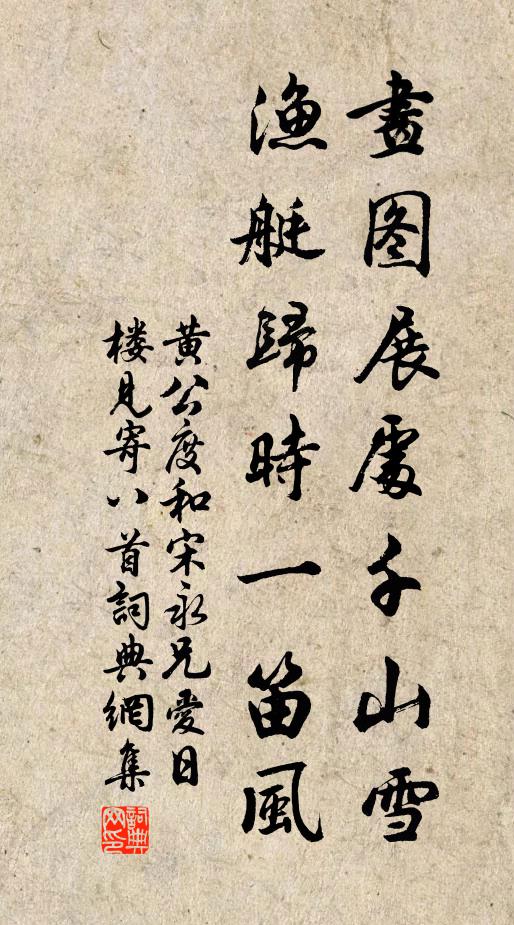 畫图展處千山雪
漁艇歸時一笛風
黄公度和宋永兄愛日
楼見寄八首詞典網集
詞典网印